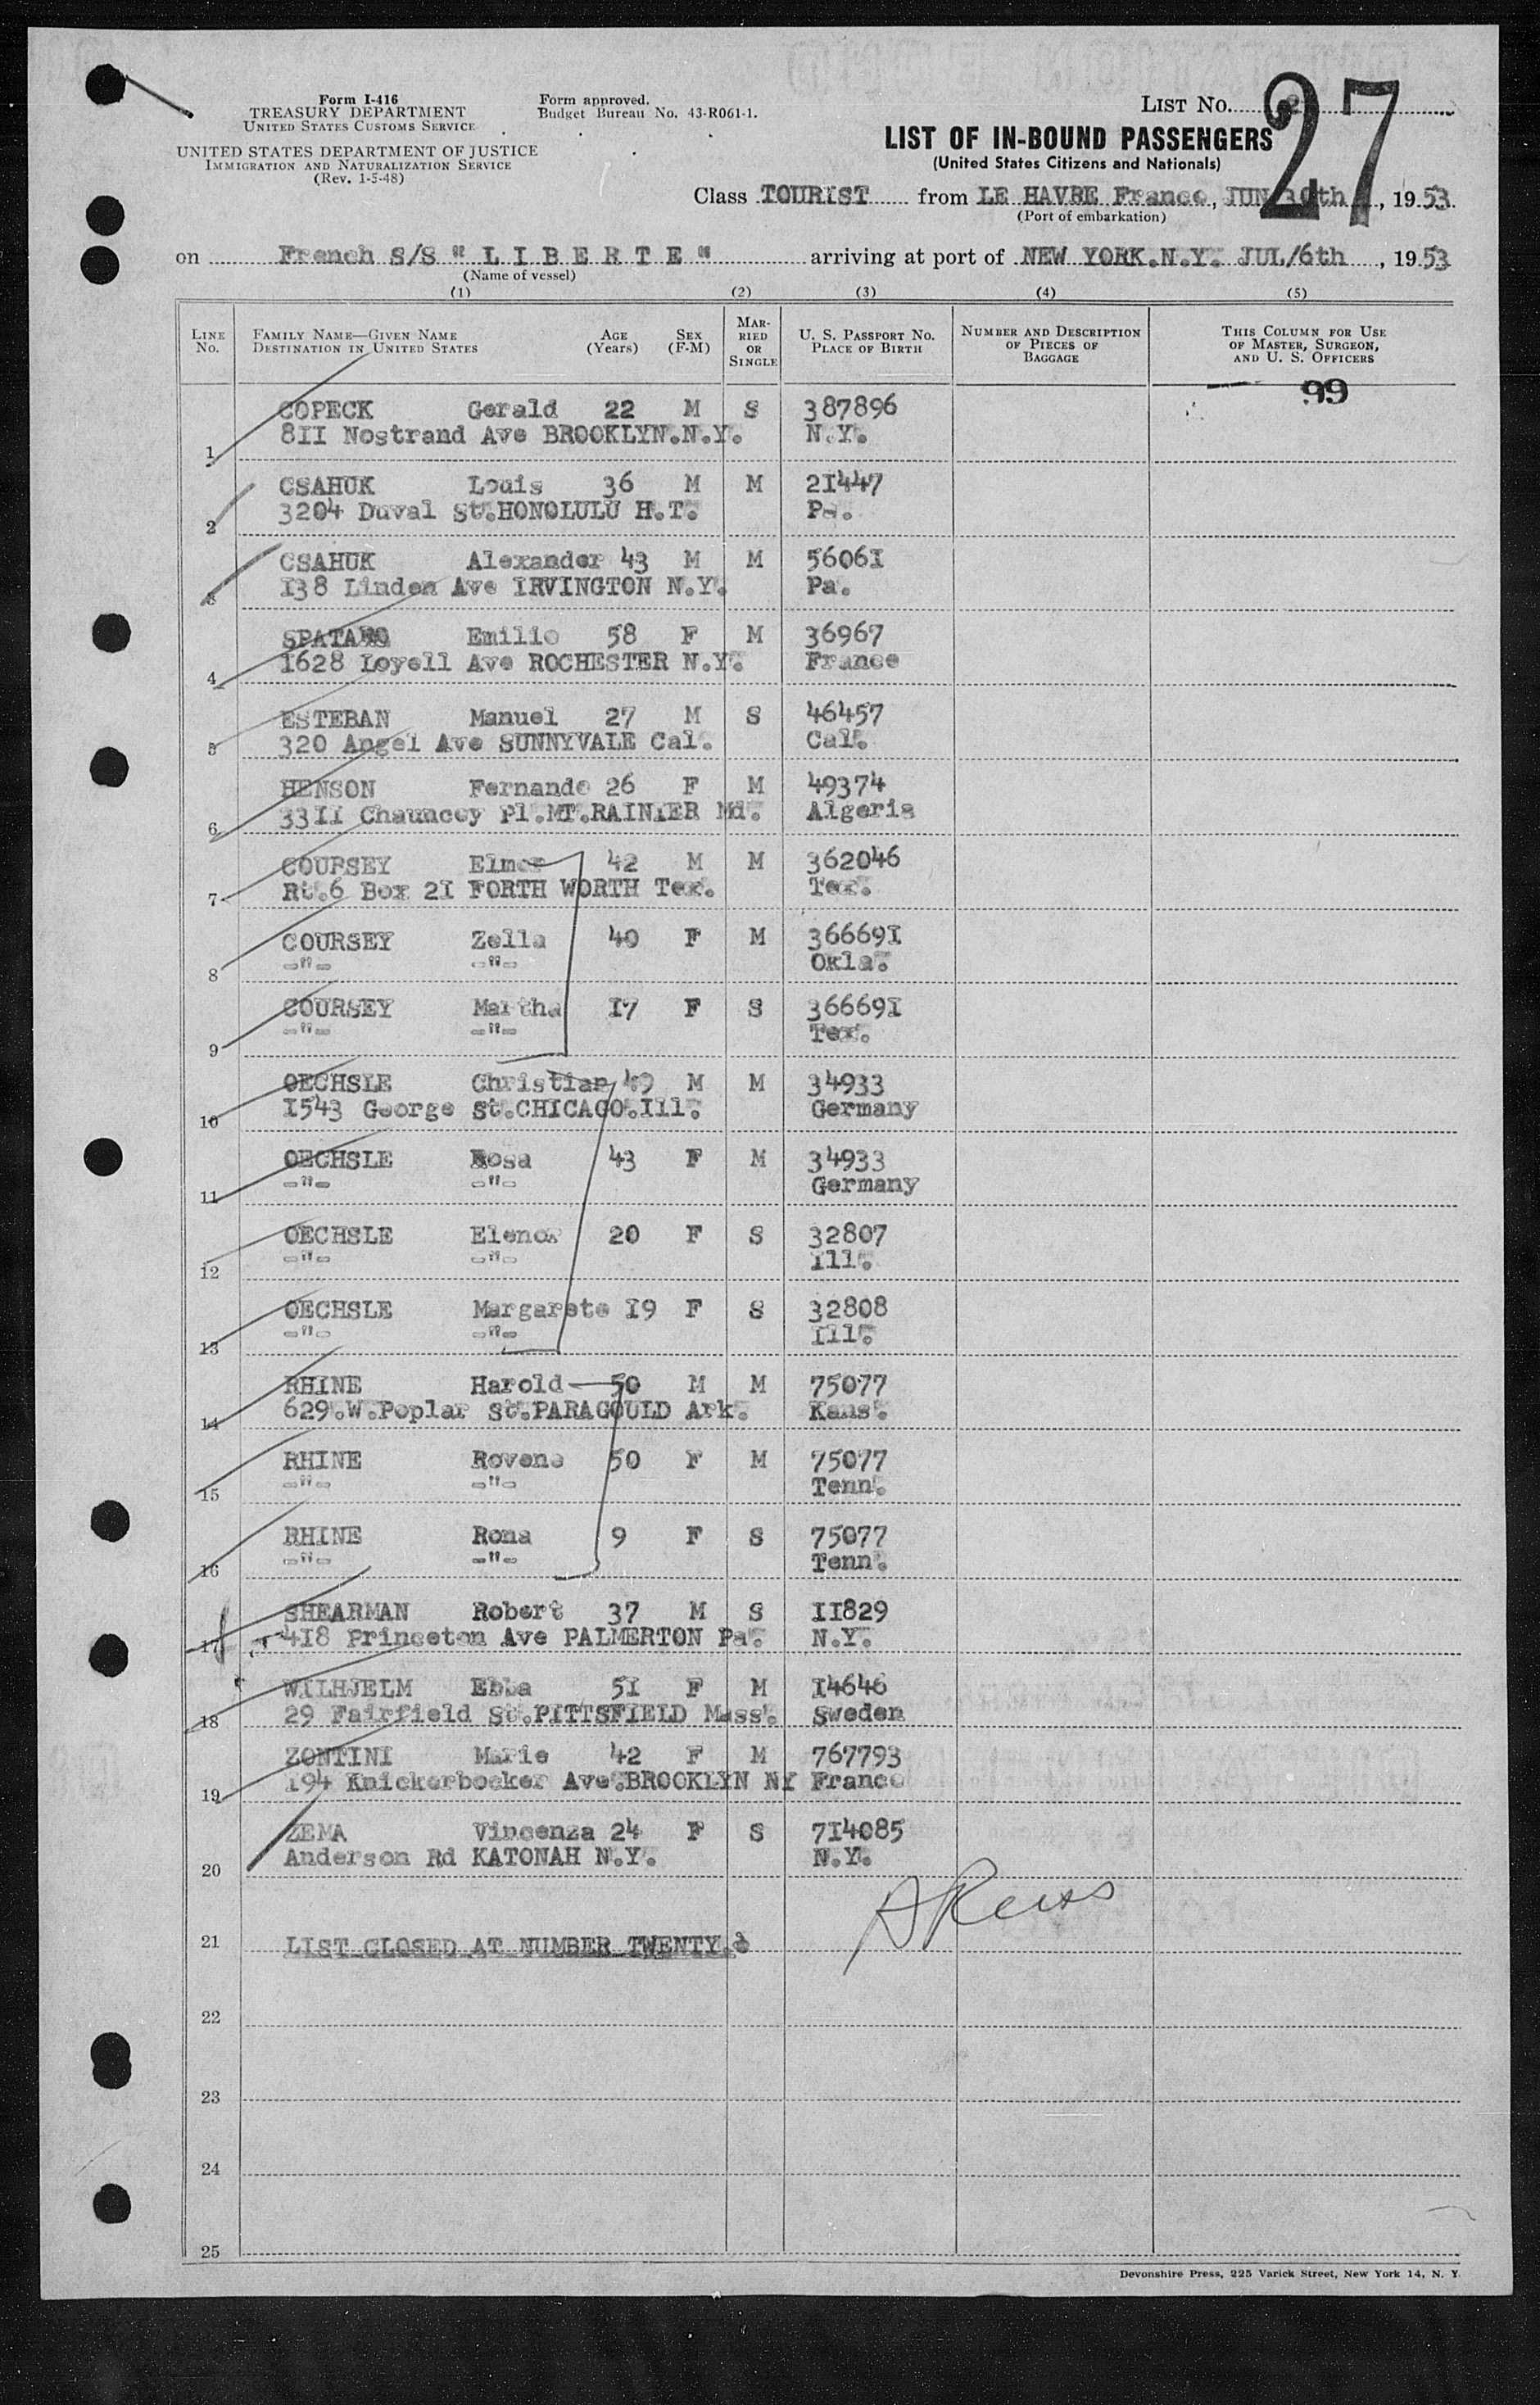 Form I-416
TREASURY DEPARTMENT
UNITED STATES CUSTOMS SERVICE
UNITED STATES DEPARTMENT OF JUSTICE
IMMIGRATION AND NATURALIZATION SERVICE
(Rev. 1-5-48)
Form approved.
Budget Bureau No. 43-R061-1.
LIST No. 27
LIST OF IN-BOUND PASSENGERS
(United States Citizens and Nationals)
Class TOURIST from LE HAVRE France, JUN 30th, 1953
(Port of embarkation)
on French S/S " L I B E R T E " arriving at port of NEW YORK.N.Y. JUL/6th, 1953
(Name of vessel)
(1) (2) (3) (4) (5)
LINE No. FAMILY NAME—GIVEN NAME DESTINATION IN UNITED STATES AGE (Years) SEX (F-M) MARRIED OR SINGLE U. S. PASSPORT No. PLACE OF BIRTH NUMBER AND DESCRIPTION OF PIECES OF BAGGAGE THIS COLUMN FOR USE OF MASTER, SURGEON, AND U. S. OFFICERS
99
COPECK Gerald 22 M S 387896
1 8II Nostrand Ave BROOKLYN.N.Y. N.Y.
CSAHUK Louis 36 M M 2I447
2 3204 Duval St.HONOLULU H.T. Pa.
CSAHUK Alexander 43 M M 5606I
3 I38 Linden Ave IRVINGTON N.Y. Pa.
SPATARO Emilie 58 F M 36967
4 I628 Loyell Ave ROCHESTER N.Y. France
ESTEBAN Manuel 27 M S 46457
5 320 Angel Ave SUNNYVALE Cal. Cal.
HENSON Fernande 26 F M 49374
6 33II Chauncey Pl.MT.RAINIER Md. Algeria
COURSEY Elmer 42 M M 362046
7 Rt.6 Box 2I FORTH WORTH Tex. Tex.
COURSEY Zella 40 F M 36669I
8 -"- -"- Okla.
COURSEY Martha I7 F S 36669I
9 -"- -"- Tex.
OECHSLE Christian 49 M M 34933
10 I543 George St.CHICAGO.Ill. Germany
OECHSLE Rosa 43 F M 34933
11 -"- -"- Germany
OECHSLE Elenor 20 F S 32807
12 -"- -"- Ill.
OECHSLE Margarete I9 F S 32808
13 -"- -"- Ill.
RHINE Harold 50 M M 75077
14 629.W.Poplar St.PARAGOULD Ark. Kans.
RHINE Rovene 50 F M 75077
15 -"- -"- Tenn.
RHINE Rona 9 F S 75077
16 -"- -"- Tenn.
SHEARMAN Robert 37 M S II829
17 418 Princeton Ave PALMERTON Pa. N.Y.
WILHJELM Ebba 5I F M I4646
18 29 Fairfield St.PITTSFIELD Mass. Sweden
ZONTINI Marie 42 F M 767793
19 I94 Knickerbocker Ave.BROOKLYN NY France
ZEMA Vincenza 24 F S 7I4085
20 Anderson Rd KATONAH N.Y. N.Y.
21 LIST CLOSED AT NUMBER TWENTY.
22
23
24
25
Devonshire Press, 225 Varick Street, New York 14, N. Y.